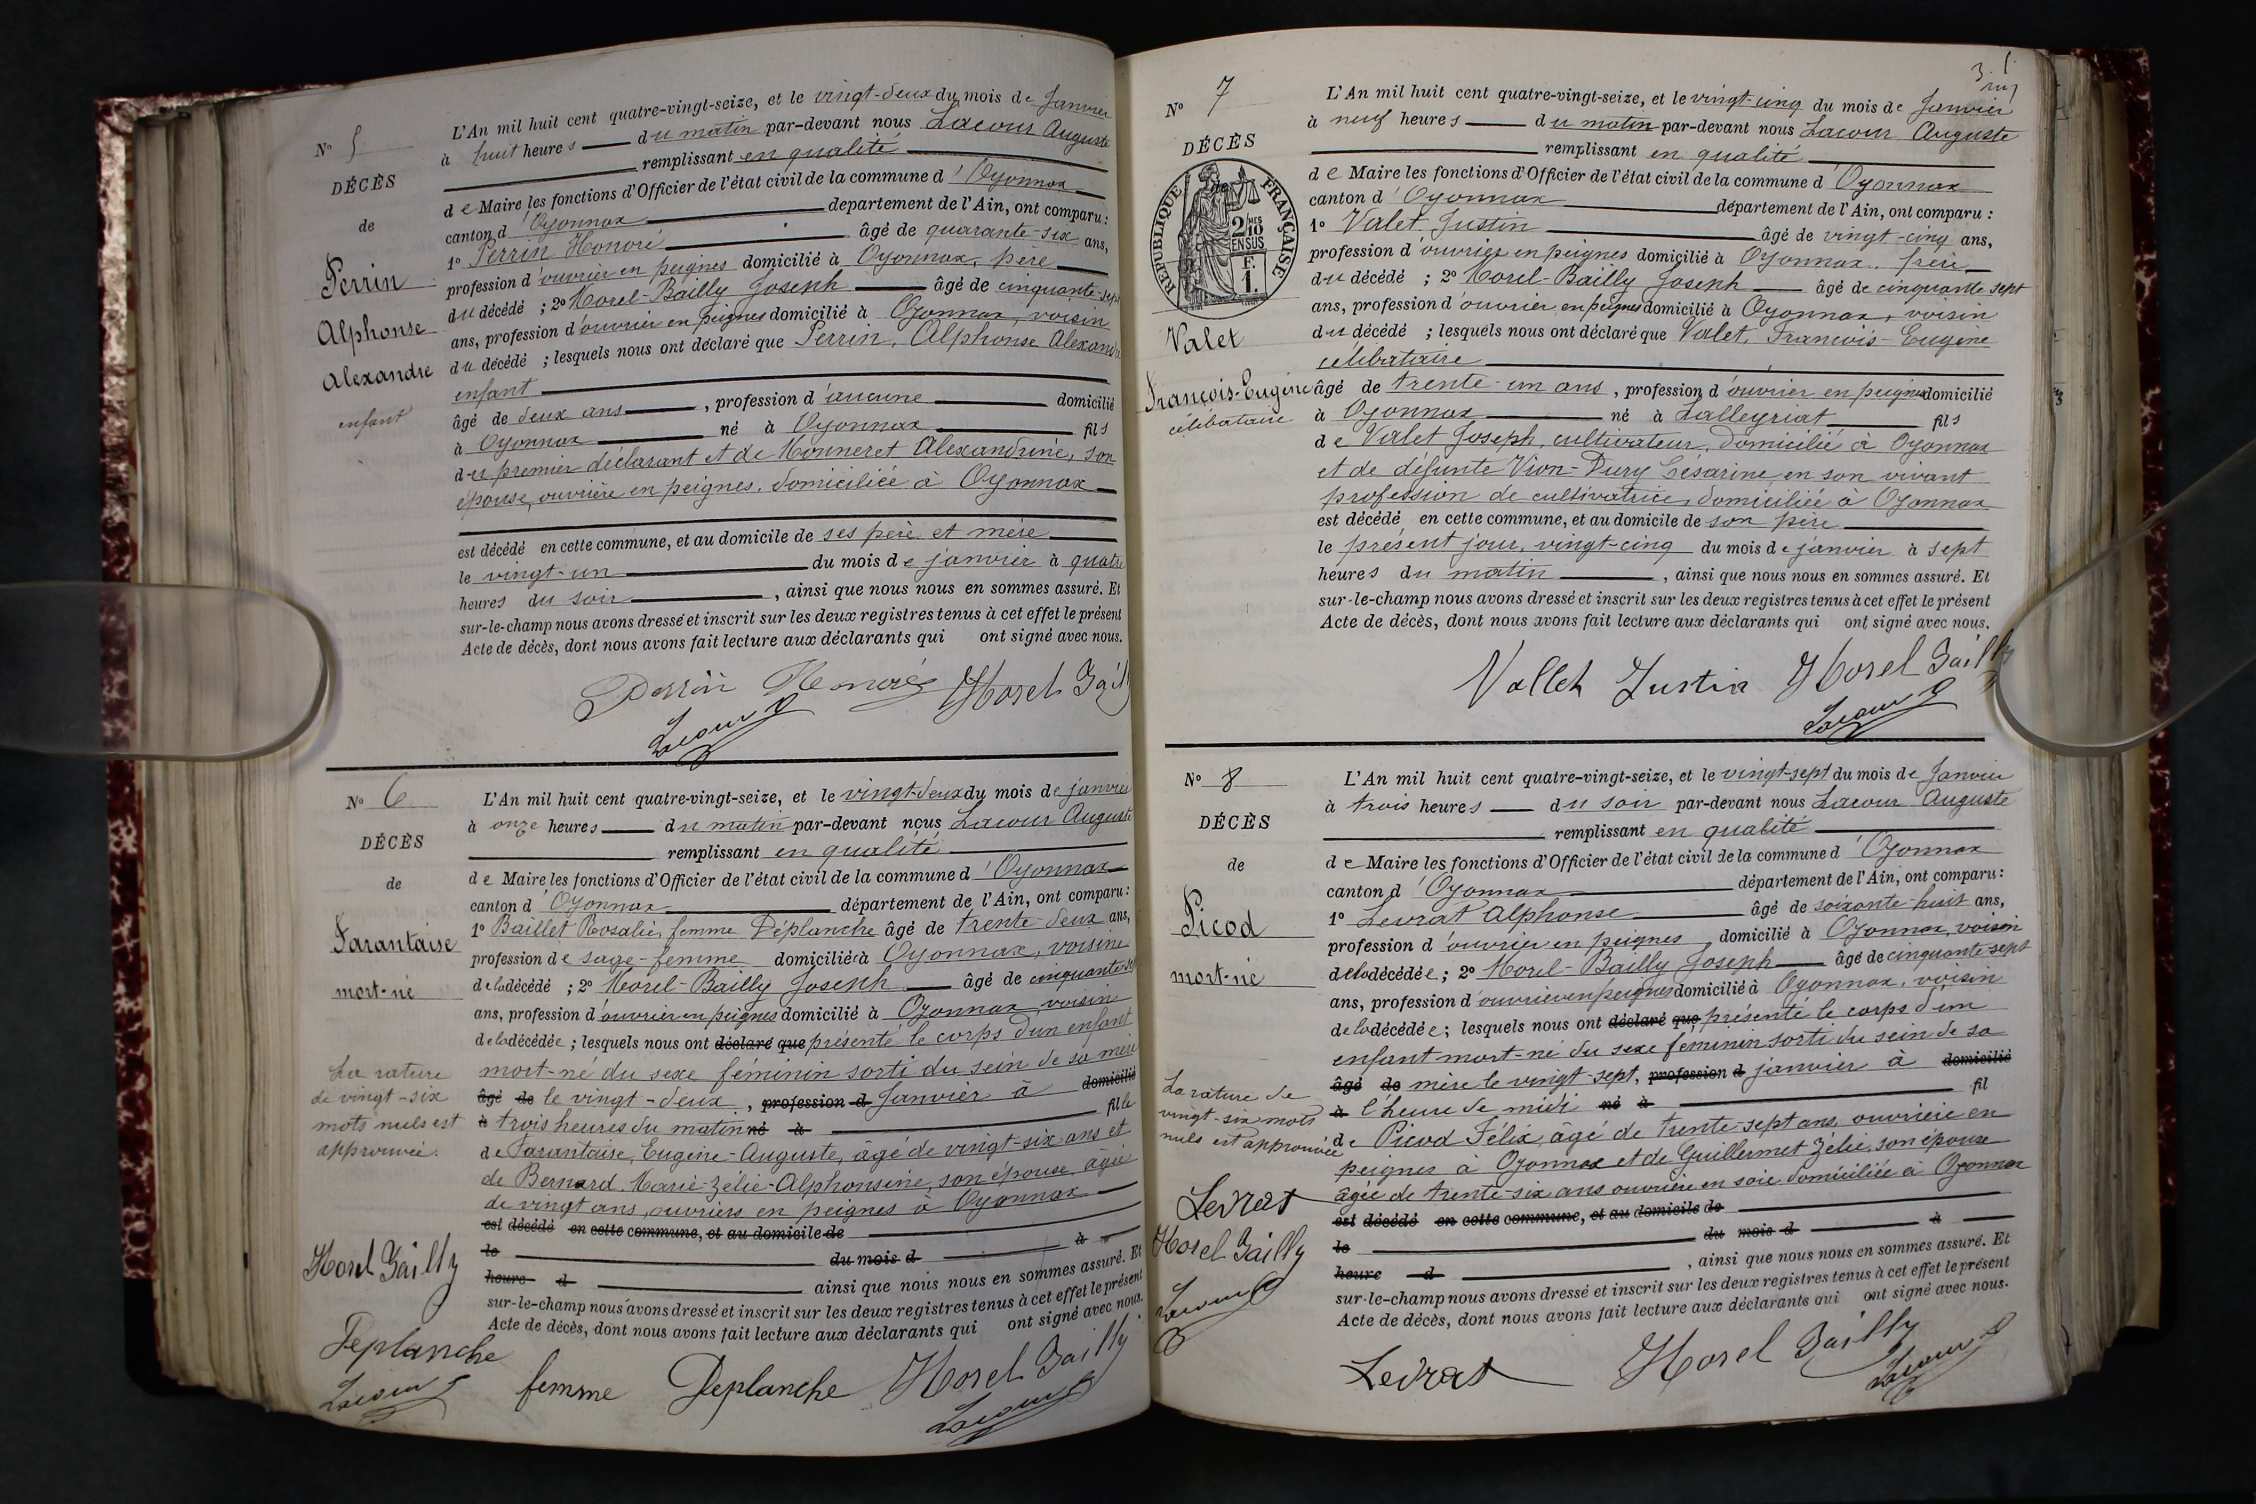 N° 5
DÉCÈS
de
Perrin
Alphonse
Alexandre
enfant
L'An mil huit cent quatre-vingt-seize, et le vingt-deux du mois de Janvier
à huit heures du matin par-devant nous Lacour Auguste
remplissant en qualité
de Maire les fonctions d'Officier de l'état civil de la commune d'Oyonnax
canton d'Oyonnax département de l'Ain, ont comparu :
1° Perrin Honoré âgé de quarante-six ans,
profession d'ouvrier en peignes domicilié à Oyonnax, père
du décédé ; 2° Morel-Bailly Joseph âgé de cinquante-sept
ans, profession d'ouvrier en peignes domicilié à Oyonnax, voisin
du décédé ; lesquels nous ont déclaré que Perrin, Alphonse Alexandre
enfant
âgé de deux ans, profession d'aucune domicilié
à Oyonnax né à Oyonnax fils
du premier déclarant et de Monneret Alexandrine, son
épouse, ouvrière en peignes, domiciliée à Oyonnax
est décédé en cette commune, et au domicile de ses père et mère
le vingt-un du mois de janvier à quatre
heures du soir, ainsi que nous nous en sommes assuré. Et
sur-le-champ nous avons dressé et inscrit sur les deux registres tenus à cet effet le présent
Acte de décès, dont nous avons fait lecture aux déclarants qui ont signé avec nous.
Perrin Honoré Morel Bailly
Lacour
N° 6
DÉCÈS
de
Tarantaise
mort-né
La rature
de vingt-six
mots nuls est
approuvée.
Morel Bailly
Deplanche
Lacour
L'An mil huit cent quatre-vingt-seize, et le vingt-deux du mois de janvier
à onze heures du matin par-devant nous Lacour Auguste
remplissant en qualité
de Maire les fonctions d'Officier de l'état civil de la commune d'Oyonnax
canton d'Oyonnax département de l'Ain, ont comparu :
1° Baillet Rosalie, femme Déplanche âgé de trente-deux ans,
profession de sage-femme domiciliée à Oyonnax, voisine
de la décédé ; 2° Morel-Bailly Joseph âgé de cinquante-sept
ans, profession d'ouvrier en peignes domicilié à Oyonnax, voisin
de la décédée ; lesquels nous ont déclaré que présenté le corps d'un enfant
mort-né du sexe féminin sorti du sein de sa mère
âgé de le vingt-deux, profession d Janvier à domicilié
à trois heures du matin né à fille
de Tarantaise, Eugène-Auguste, âgé de vingt-six ans et
de Bernard, Marie-Zélie-Alphonsine, son épouse, âgée
de vingt ans, ouvriers en peignes à Oyonnax
est décédé en cette commune, et au domicile de
le du mois d à
heure d ainsi que nous nous en sommes assuré. Et
sur-le-champ nous avons dressé et inscrit sur les deux registres tenus à cet effet le présent
Acte de décès, dont nous avons fait lecture aux déclarants qui ont signé avec nous.
femme Deplanche Morel Bailly
Lacour
3
N° 7
DÉCÈS
RÉPUBLIQUE FRANÇAISE
2/10 MES
EN SUS
1 F.
Valet
François-Eugène
célibataire
L'An mil huit cent quatre-vingt-seize, et le vingt-cinq du mois de Janvier
à neuf heures du matin par-devant nous Lacour Auguste
remplissant en qualité
de Maire les fonctions d'Officier de l'état civil de la commune d'Oyonnax
canton d'Oyonnax département de l'Ain, ont comparu :
1° Valet Justin âgé de vingt-cinq ans,
profession d'ouvrier en peignes domicilié à Oyonnax, frère
du décédé ; 2° Morel-Bailly Joseph âgé de cinquante sept
ans, profession d'ouvrier en peignes domicilié à Oyonnax, voisin
du décédé ; lesquels nous ont déclaré que Valet, François-Eugène
célibataire
âgé de trente-un ans, profession d'ouvrier en peignes domicilié
à Oyonnax né à Lalleyriat fils
de Valet Joseph, cultivateur, domicilié à Oyonnax
et de défunte Vion-Dury Césarine, en son vivant
profession de cultivatrice, domiciliée à Oyonnax
est décédé en cette commune, et au domicile de son père
le présent jour, vingt-cinq du mois de janvier à sept
heures du matin, ainsi que nous nous en sommes assuré. Et
sur-le-champ nous avons dressé et inscrit sur les deux registres tenus à cet effet le présent
Acte de décès, dont nous avons fait lecture aux déclarants qui ont signé avec nous.
Vallet Justin Morel Bailly
Lacour
N° 8
DÉCÈS
de
Picod
mort-né
La rature de
vingt-six mots
nuls est approuvée
Levrat
Morel Bailly
Lacour
L'An mil huit cent quatre-vingt-seize, et le vingt-sept du mois de Janvier
à trois heures du soir par-devant nous Lacour Auguste
remplissant en qualité
de Maire les fonctions d'Officier de l'état civil de la commune d'Oyonnax
canton d'Oyonnax département de l'Ain, ont comparu :
1° Levrat Alphonse âgé de soixante-huit ans,
profession d'ouvrier en peignes domicilié à Oyonnax, voisin
de la décédée ; 2° Morel-Bailly Joseph âgé de cinquante-sept
ans, profession d'ouvrier en peignes domicilié à Oyonnax, voisin
de la décédée ; lesquels nous ont déclaré que présenté le corps d'un
enfant mort-né du sexe féminin sorti du sein de sa
âgé de mère le vingt-sept, profession d janvier à domicilié
à l'heure de midi né à fil
de Picod Félix, âgé de trente-sept ans, ouvrière en
peignes à Oyonnax et de Guillermet Zélie, son épouse
âgée de trente-six ans ouvrière en soie domiciliée à Oyonnax
est décédé en cette commune, et au domicile de
le du mois d à
heure d, ainsi que nous nous en sommes assuré. Et
sur-le-champ nous avons dressé et inscrit sur les deux registres tenus à cet effet le présent
Acte de décès, dont nous avons fait lecture aux déclarants qui ont signé avec nous.
Levrat Morel Bailly
Lacour